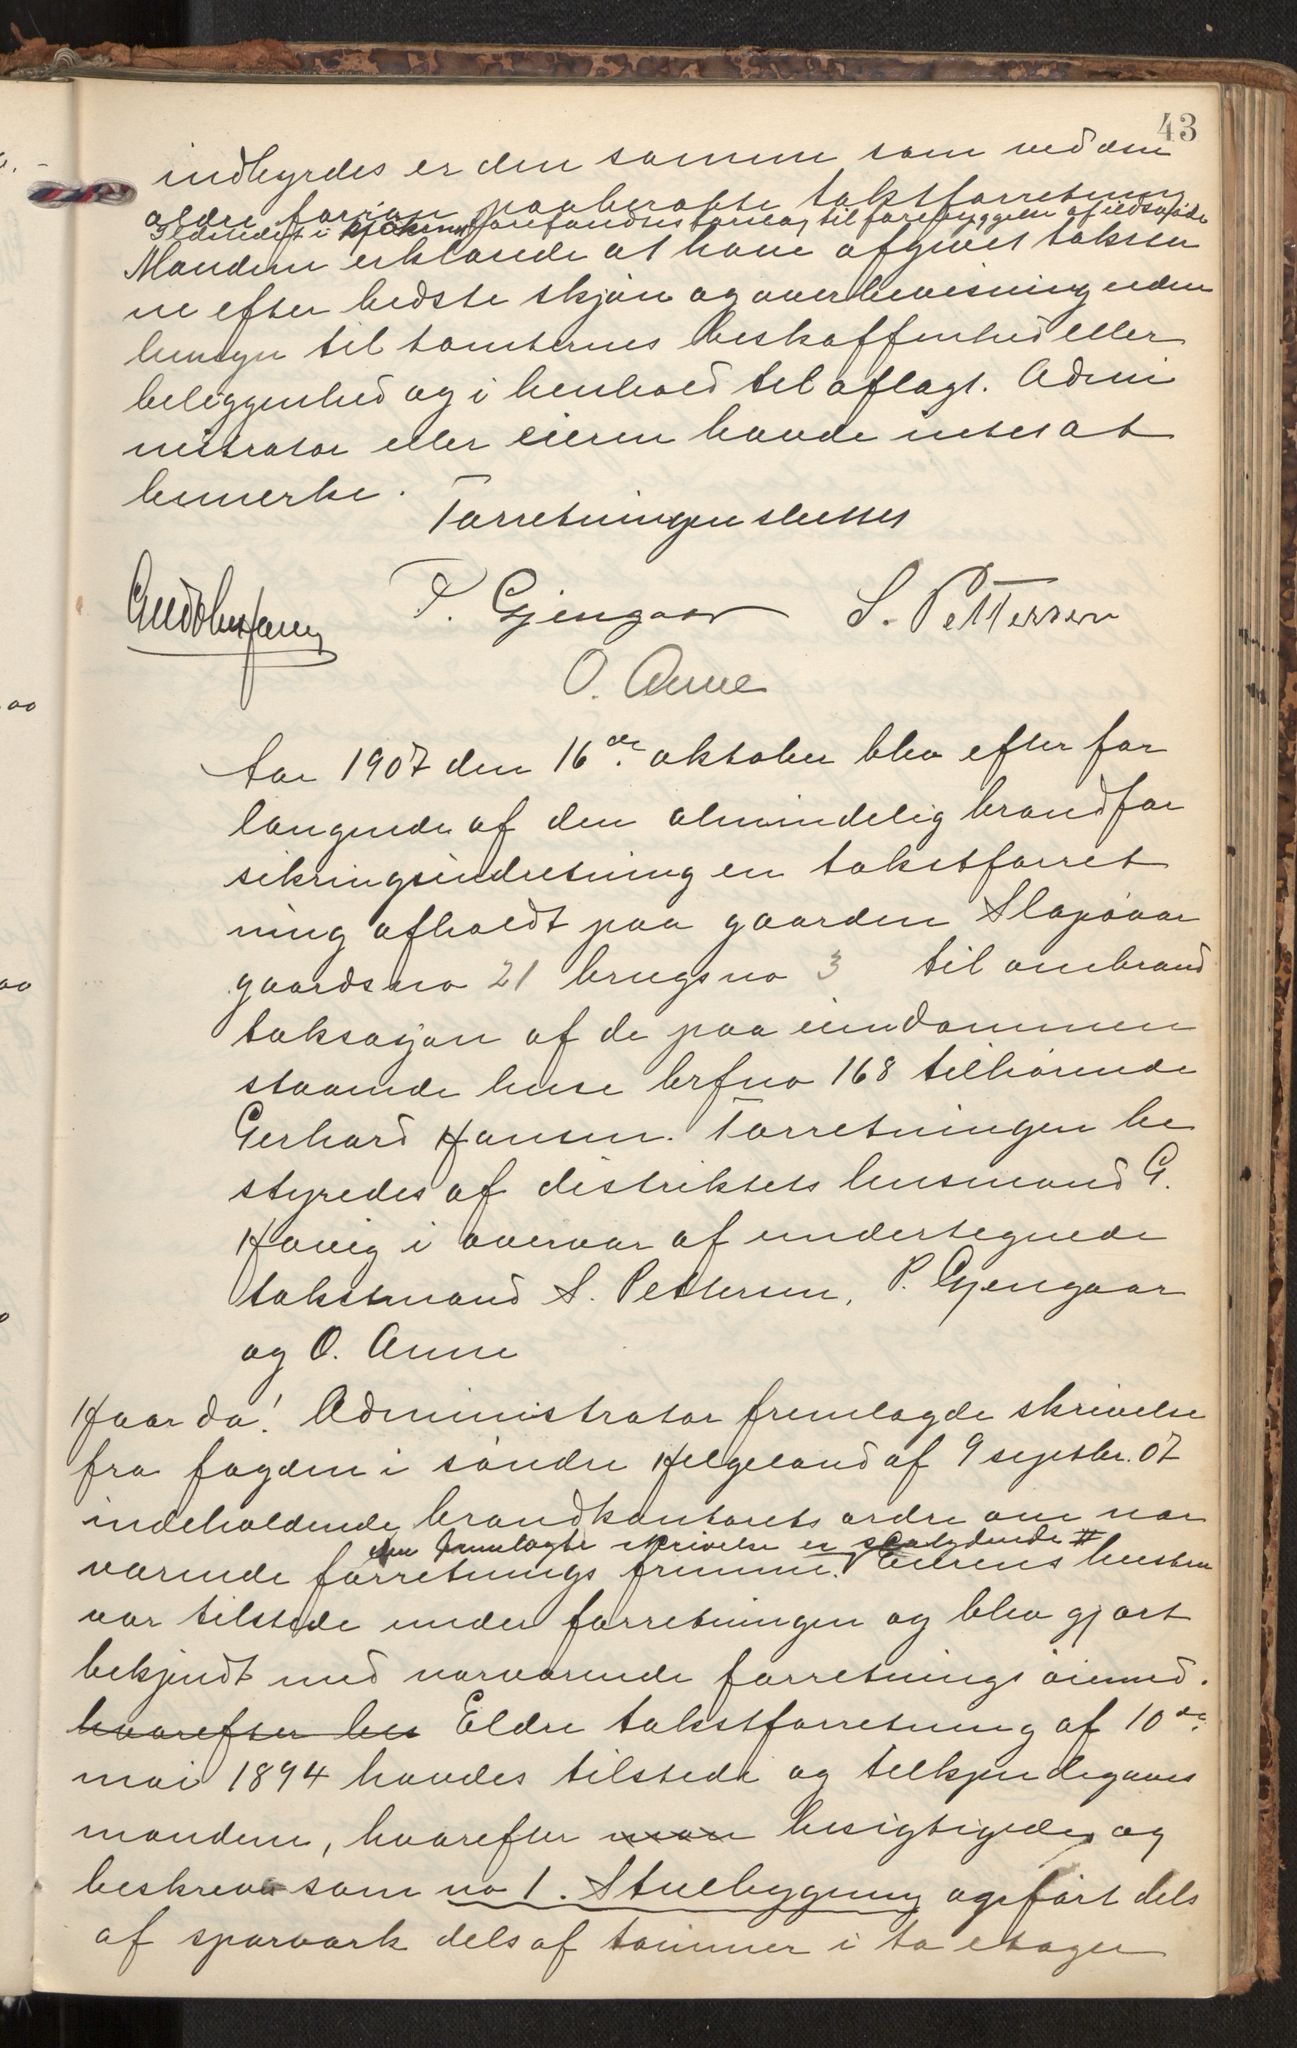 43
indbyrdes er den samme som ved den
ældre forian paaberopte takstforretning
Ildstedet i kjökenet forefandtes forelag til forebyggelse af ildsvåde
Mændene erklærede at have afgivet takster
ne efter bedste skjön og overbevisning uden
hensyn til tomternes beskaffenhed eller
beliggenhed og i henhold til aflagt. Admi
nistrator eller eieren havde intet at
bemerke.
Forretningen sluttet
P. Gjengaar S. Pettersen
O. Aune
Aar 1907 den 16de oktober blev efter for
langende af den almindelig brandfor
sikringsindretning en takstforret
ning afholdt paa gaarden Slapöar
gaardsno 21 brugsno 3 til ombrand
taksasjon af de paa eiendommen
staaende huse brfno 168 tilhörende
Gerhard Hansen. Forretningen be
styredes af distriktets lensmand G.
Høvig i overvær af undertegnede
takstmænd S. Pettersen, P. Gjengaar
og O. Aune
Hvor da! Administrator fremlagde skrivelse
fra fogden i söndre Helgeland af 9 septbr. 07
indeholdende brandkontorets ordre om nær
den fremlagte skrivelse er saalydende #
værende forretnings fremme. Eierens hustru
var tilstede under forretningen og blev gjort
bekjendt med nærværende forretnings öiemed.
hvorefter be Eldre takstforretning af 10de
mai 1894 havdes tilstede og tilkjendegaves
mændene, hvorefter man besigtigedes og
beskreves som no 1. Stuebygning opfört dels
af sparværk dels af tömmer i to etager